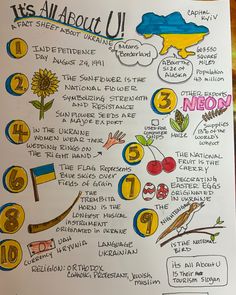 It's All About U!
A FACT SHEET ABOUT UKRAINE
Means
Borderland
CAPITAL
KYIV
ABOUT THE
SIZE OF
ALASKA
SQUARE
MILES
Population
1
INDEPENDENCE
DAY AUGUST 24, 1991
2
THE SUNFLOWER IS THE
NATIONAL FLOWER
SYMBOLIZING STRENGTH
AND RESISTANCE
SUNFLOWER SEEDS ARE
A MAJOR EXPORT
3
OTHER EXPORTS
NEON
MAIZE
USED FOR
COMPUTER
CHIPS
Supplies
of the
world's
4
IN THE UKRAINE
WOMEN WEAR THEIR
WEDDING RINGS ON
THE RIGHT HAND
5
THE NATIONAL
FRUIT IS THE
CHERRY
6
THE FLAG REPRESENTS
BLUE SKIES OVER
FIELDS OF GRAIN
7
DECORATING
EASTER EGGS
ORIGINATED
IN UKRAINE
8
THE
TREMBITA
HORN IS THE
LONGEST MUSICAL
INSTRUMENT
ORIGINATED IN UKRAINE
9
THE
NIGHTINGALE
IS THE NATIONAL
BIRD
10
CURRENCY
UAH
HRYVNIA
LANGUAGE
UKRAINIAN
RELIGION: ORTHODOX
CATHOLIC, PROTESTANT, Jewish,
Its All About U
IS Their
Tourism Slogan